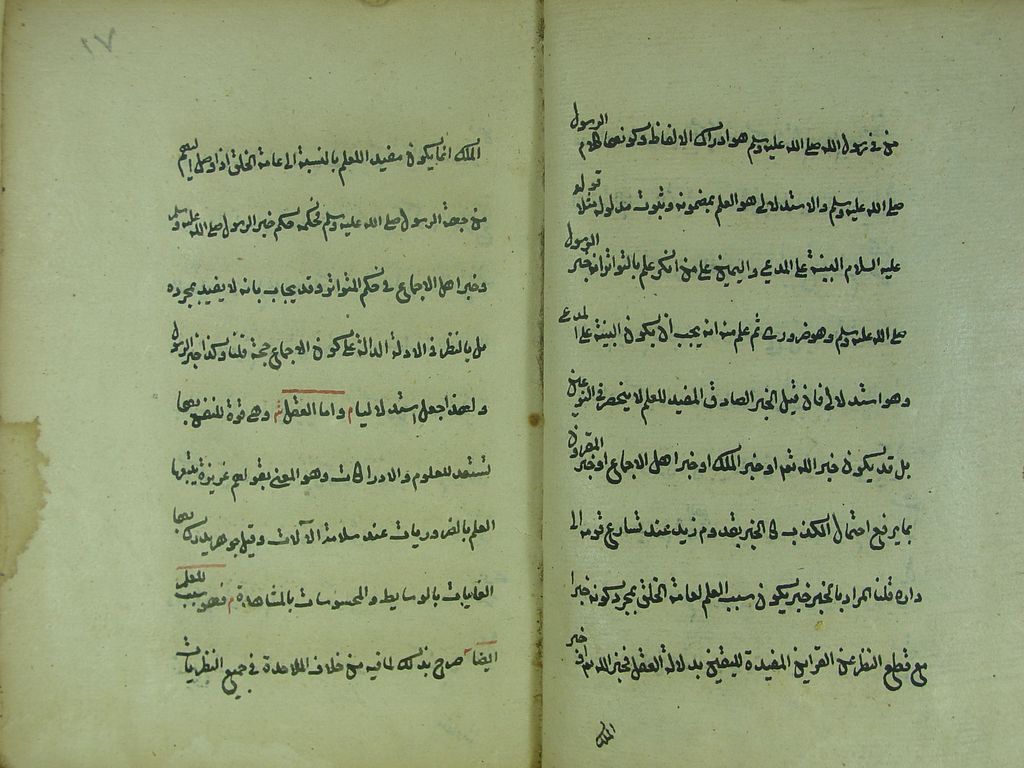 من في رسول الله صلى الله عليه وسلم هو ادراك الالفاظ وكونها كلام الرسول
صلى الله عليه وسلم والاستدلالي هو العلم بمضمونه وثبوت مدلوله مثلا قوله
عليه السلام البينة على المدعي واليمين على من انكر علم بالتواتر انه خبر الرسول
صلى الله عليه وسلم وهو ضروري ثم علم منه انه يجب أن يكون البينة على المدعي
وهو استدلالي فان قيل الخبر الصادق المفيد للعلم لا ينحصر في النوعين
بل قد يكون خبر الله تع او خبر الملك او خبر اهل الاجماع او خبر المقرون
بما يرفع احتمال الكذب كالخبر بقدوم زيد عند تسارع قومه الى
داره قلنا المراد بالخبر خبر يكون سبب العلم لعامة الخلق بمجرد كونه خبرا
مع قطع النظر عن القراين المفيدة لليقين بدلالة العقل فخبر الله تع او خبر
الملك
١٧
الملك انما يكون مفيد اللعلم بالنسبة الى عامة الخلق اذا وصل اليهم
من جهة الرسول صلى الله عليه وسلم فحكمه حكم خبر الرسول صلى الله عليه وسلم
وخبر اهل الاجماع في حكم المتواتر وقد يجاب بانه لا يفيد بمجرده
بل بالنظر في الادلة الدالة على كون الاجماع حجة قلنا وكذا خبر الرسول
ولهذا جعل استدلاليا م واما العقل ش وهي قوة للنفس بها
تستعد للعلوم والادراكات وهو المعني بقولهم غريزة يتبعها
العلم بالضروريات عند سلامة الآلات وقيل جوهر يدرك بها
الغايبات بالوسايط والمحسوسات بالمشاهدة م فهو سبب للعلم
ايضا صرح بذلك لما فيه من خلاف الملاحدة في جميع النظريات